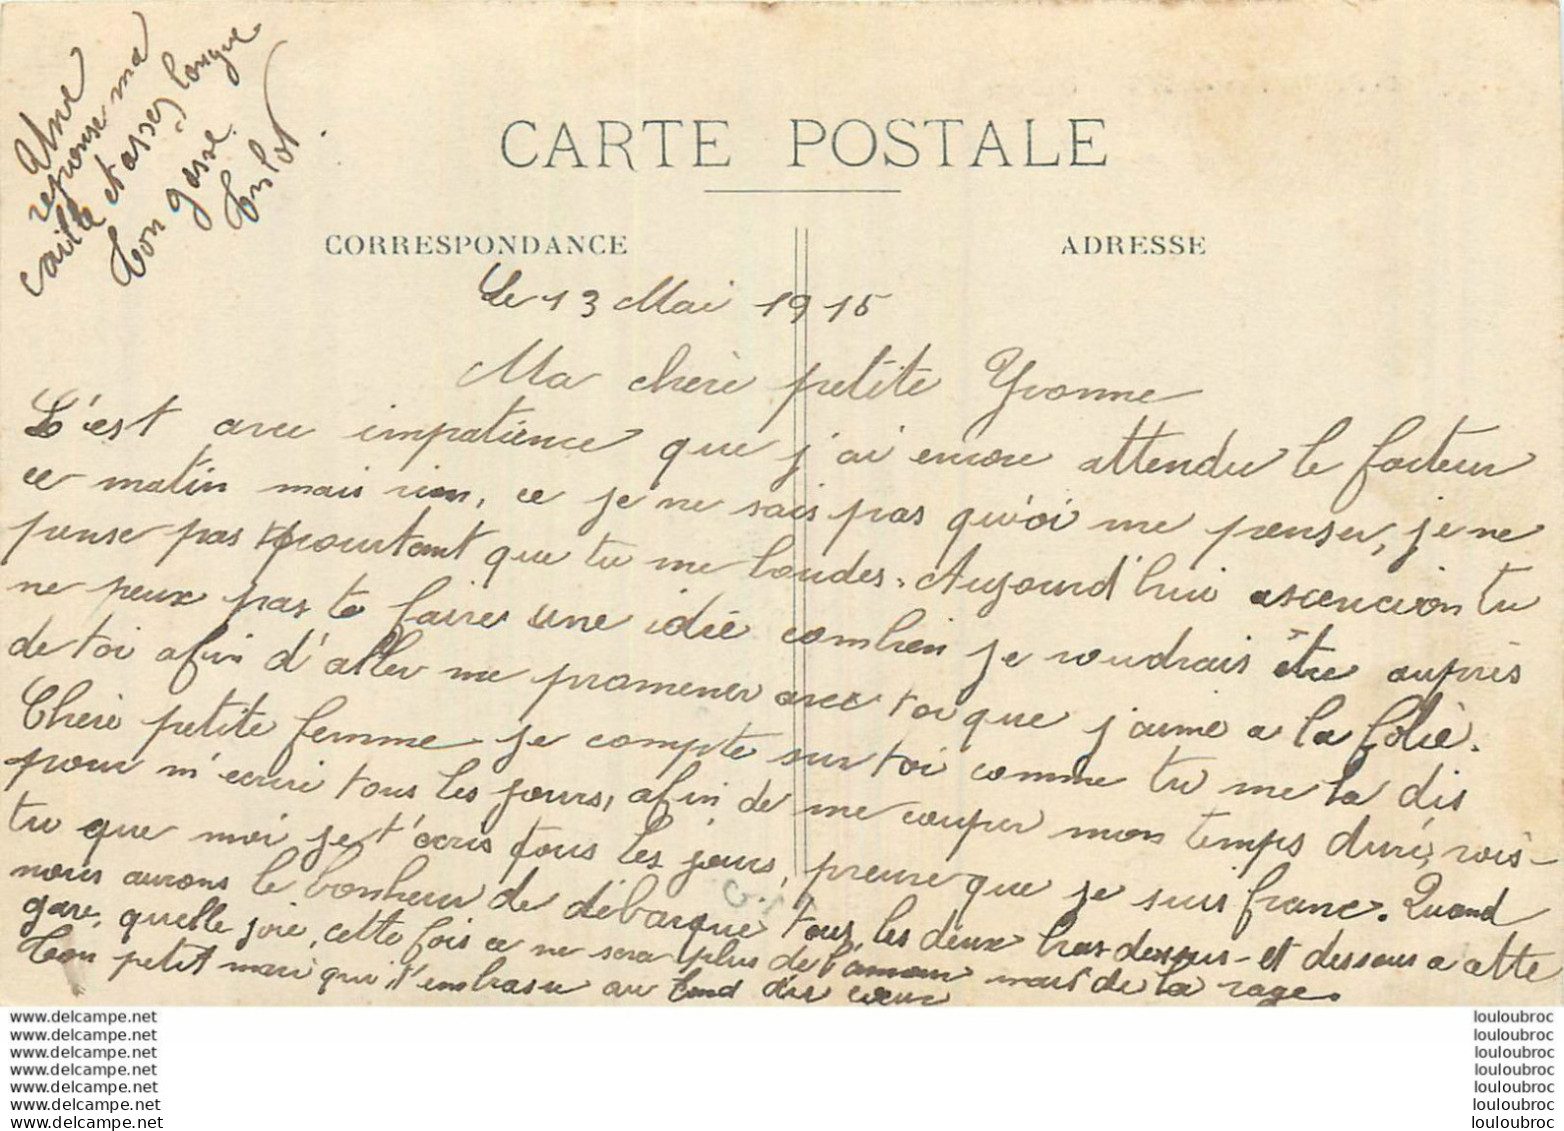 Une
reponse ma
caille et assez longue
ton gosse
CARTE POSTALE
CORRESPONDANCE
ADRESSE
Le 13 Mai 1915
Ma chère petite Yvonne
C'est avec impatience que j'ai encore attendu le facteur
ce matin mais rien, ce je ne sais pas qu'oi me penser, je ne
pense pas pourtant que tu me boudes. Aujourd'hui ascencion tu
ne peux pas te faire une idée combien je voudrais être auprès
de toi afin d'aller me promener avec toi que j'aime a la folie.
Chère petite femme je compte sur toi comme tu me la dis
pour m'écrire tous les jours, afin de me couper mon temps duré, vois-
tu que moi je t'ecris tous les jours, preuve que je suis franc. Quand
nous aurons le bonheur de débarque tous les deux bras dessus - et dessous a cette
gare, quelle joie, cette fois ce ne sera plus de l'amour mais de la rage.
Ton petit mari qui t'embrasse au fond du cœur
www.delcampe.net
www.delcampe.net
www.delcampe.net
www.delcampe.net
www.delcampe.net
www.delcampe.net
www.delcampe.net
louloubroc
louloubroc
louloubroc
louloubroc
louloubroc
louloubroc
louloubroc